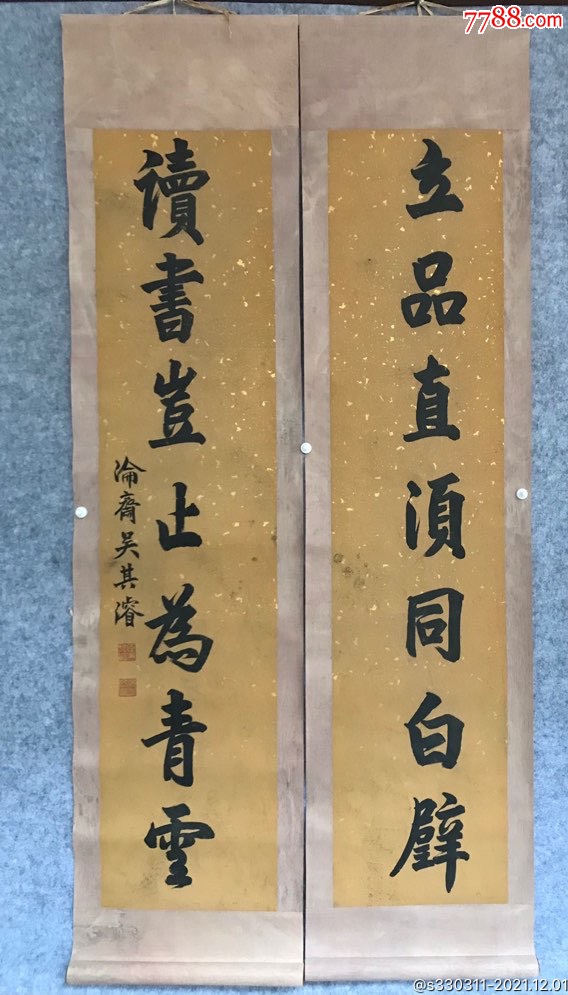 7788.com
立品直須同白璧
讀書豈止為青雲
淪齋吳其濬
@s330311-2021.12.01